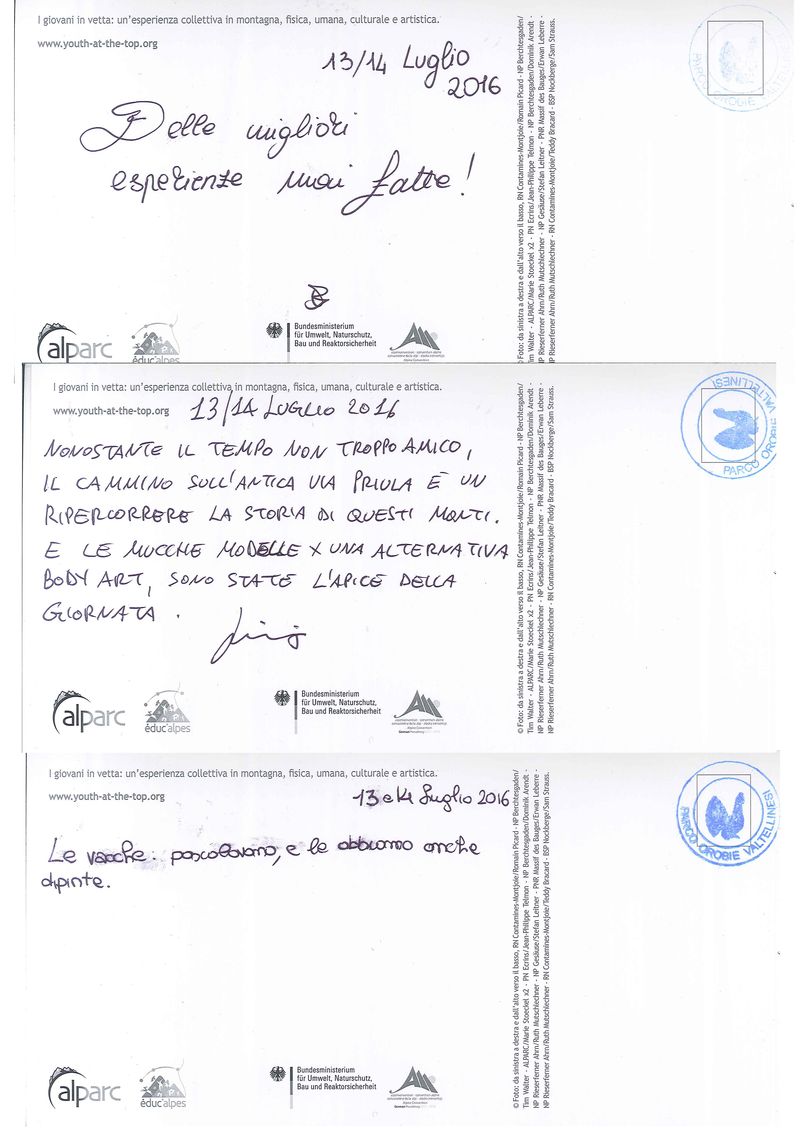 I giovani in vetta: un'esperienza collettiva in montagna, fisica, umana, culturale e artistica.
www.youth-at-the-top.org
13/14 Luglio
2016
Delle migliori
esperienze mai fatte!
alparc
éduc'alpes
Bundesministerium
für Umwelt, Naturschutz,
Bau und Reaktorsicherheit
© Foto: da sinistra a destra e dall'alto verso il basso, RN Contamines-Montjoie/Romain Picard - NP Berchtesgaden/
Tim Walter - ALPARC/Marie Stoeckel x2 - PN Ecrins/Jean-Philippe Telmon - NP Berchtesgaden/Dominik Arendt -
NP Rieserferner Ahrn/Ruth Mutschlechner - NP Gesäuse/Stefan Leitner - PNR Massif des Bauges/Erwan Leberre -
IP Rieserferner Ahrn/Ruth Mutschlechner - RN Contamines-Montjoie/Teddy Bracard - BSP Nockberge/Sam Strauss.
PARCO OROBIE VALTELLINESI
I giovani in vetta: un'esperienza collettiva in montagna, fisica, umana, culturale e artistica.
www.youth-at-the-top.org
13/14 LUGLIO 2016
NONOSTANTE IL TEMPO NON TROPPO AMICO,
IL CAMMINO SULL'ANTICA VIA PRIULA È UN
RIPERCORRERE LA STORIA DI QUESTI MONTI.
E LE MUCCHE MODELLE X UNA ALTERNATIVA
BODY ART, SONO STATE L'APICE DELLA
GIORNATA.
alparc
éduc'alpes
Bundesministerium
für Umwelt, Naturschutz,
Bau und Reaktorsicherheit
© Foto: da sinistra a destra e dall'alto verso il basso, RN Contamines-Montjoie/Romain Picard - NP Berchtesgaden/
Tim Walter - ALPARC/Marie Stoeckel x2 - PN Ecrins/Jean-Philippe Telmon - NP Berchtesgaden/Dominik Arendt -
NP Rieserferner Ahrn/Ruth Mutschlechner - NP Gesäuse/Stefan Leitner - PNR Massif des Bauges/Erwan Leberre -
NP Rieserferner Ahrn/Ruth Mutschlechner - RN Contamines-Montjoie/Teddy Bracard - BSP Nockberge/Sam Strauss.
PARCO OROBIE VALTELLINESI
I giovani in vetta: un'esperienza collettiva in montagna, fisica, umana, culturale e artistica.
www.youth-at-the-top.org
13 e 14 Luglio 2016
Le vacche: pascolavano, e le abbiamo anche
dipinte.
alparc
éduc'alpes
Bundesministerium
für Umwelt, Naturschutz,
Bau und Reaktorsicherheit
© Foto: da sinistra a destra e dall'alto verso il basso, RN Contamines-Montjoie/Romain Picard - NP Berchtesgaden/
Tim Walter - ALPARC/Marie Stoeckel x2 - PN Ecrins/Jean-Philippe Telmon - NP Berchtesgaden/Dominik Arendt -
NP Rieserferner Ahrn/Ruth Mutschlechner - NP Gesäuse/Stefan Leitner - PNR Massif des Bauges/Erwan Leberre -
NP Rieserferner Ahrn/Ruth Mutschlechner - RN Contamines-Montjoie/Teddy Bracard - BSP Nockberge/Sam Strauss.
PARCO OROBIE VALTELLINESI